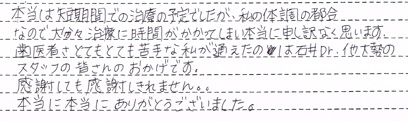 本当は短期間での治療の予定でしたが、私の体調の都合
なので大分々治療に時間がかかってしまい本当に申し訳なく思います。
歯医者さとてもとても苦手な私が通えたのは石井Dr.他大勢の
スタッフの皆さんのおかげです。
感謝しても感謝しきれません。。
本当に本当にありがとうございました。